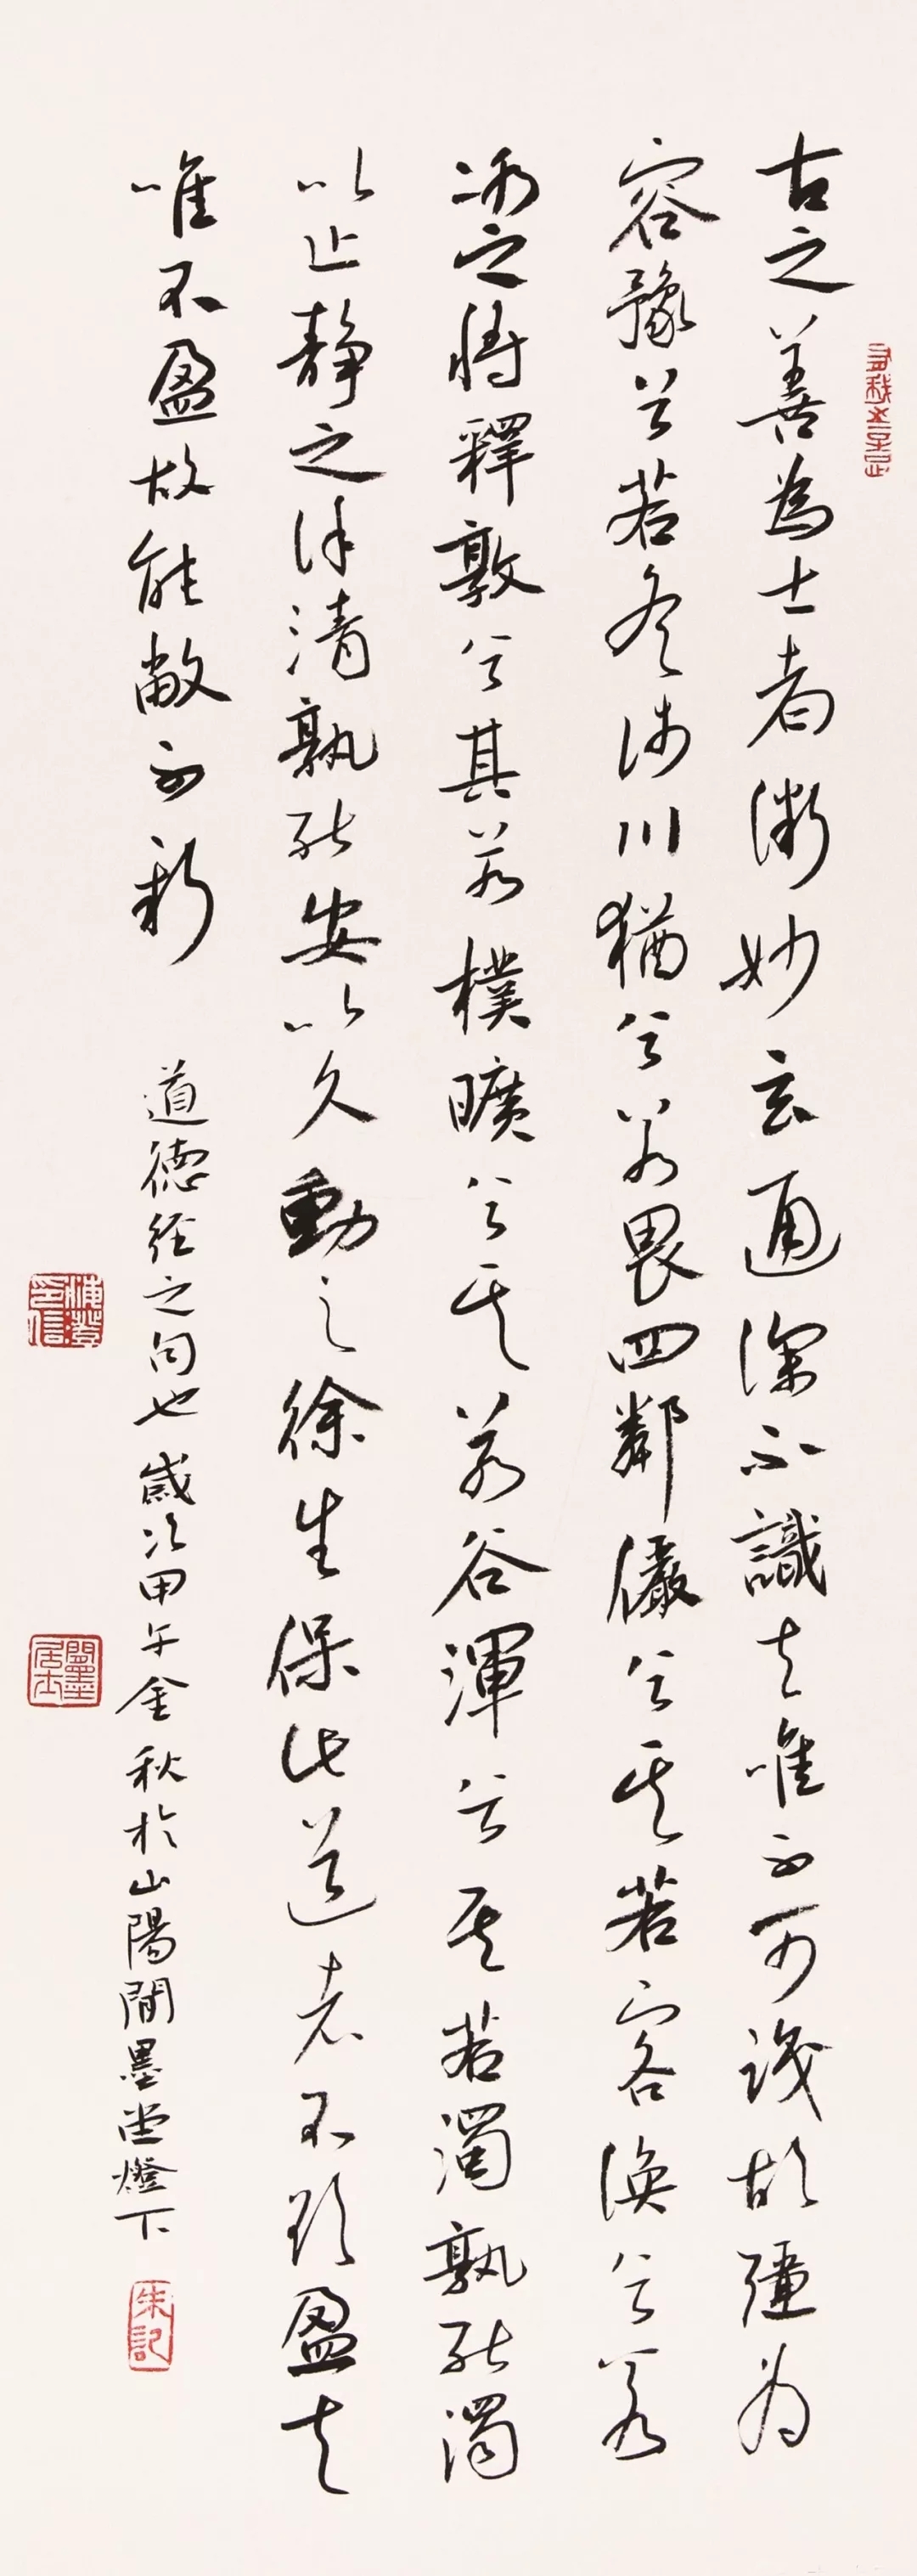 古之善為士者微妙玄通深不識夫唯不可識故彊為
容豫兮若冬涉川猶兮若畏四鄰儼兮其若客渙兮若
冰之將釋敦兮其若樸曠兮其若谷渾兮其若濁孰能濁
以止靜之徐清孰能安以久動之徐生保此道者不欲盈夫
唯不盈故能敝不新
道德經之句也歲次甲午金秋於山陽閒墨堂燈下
朱記